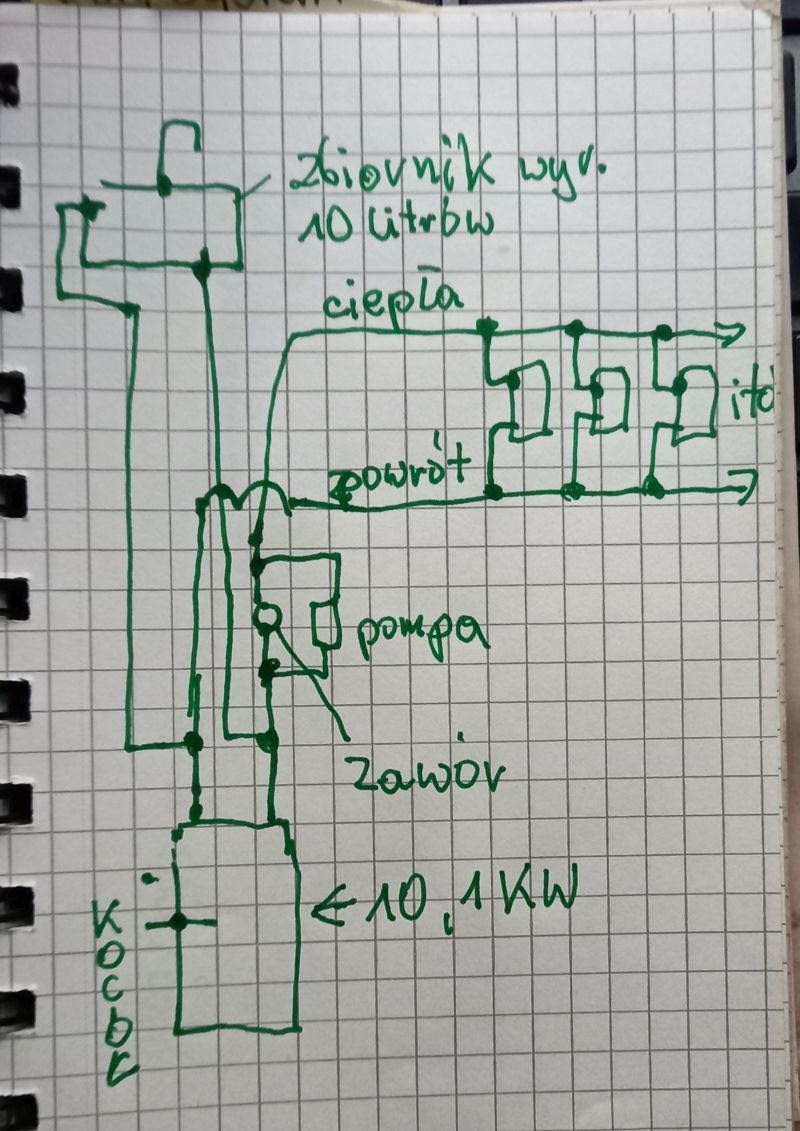 zbiornik wyr.
10 litrów
ciepła
itd
powrót
pompa
zawór
← 10,1 KW